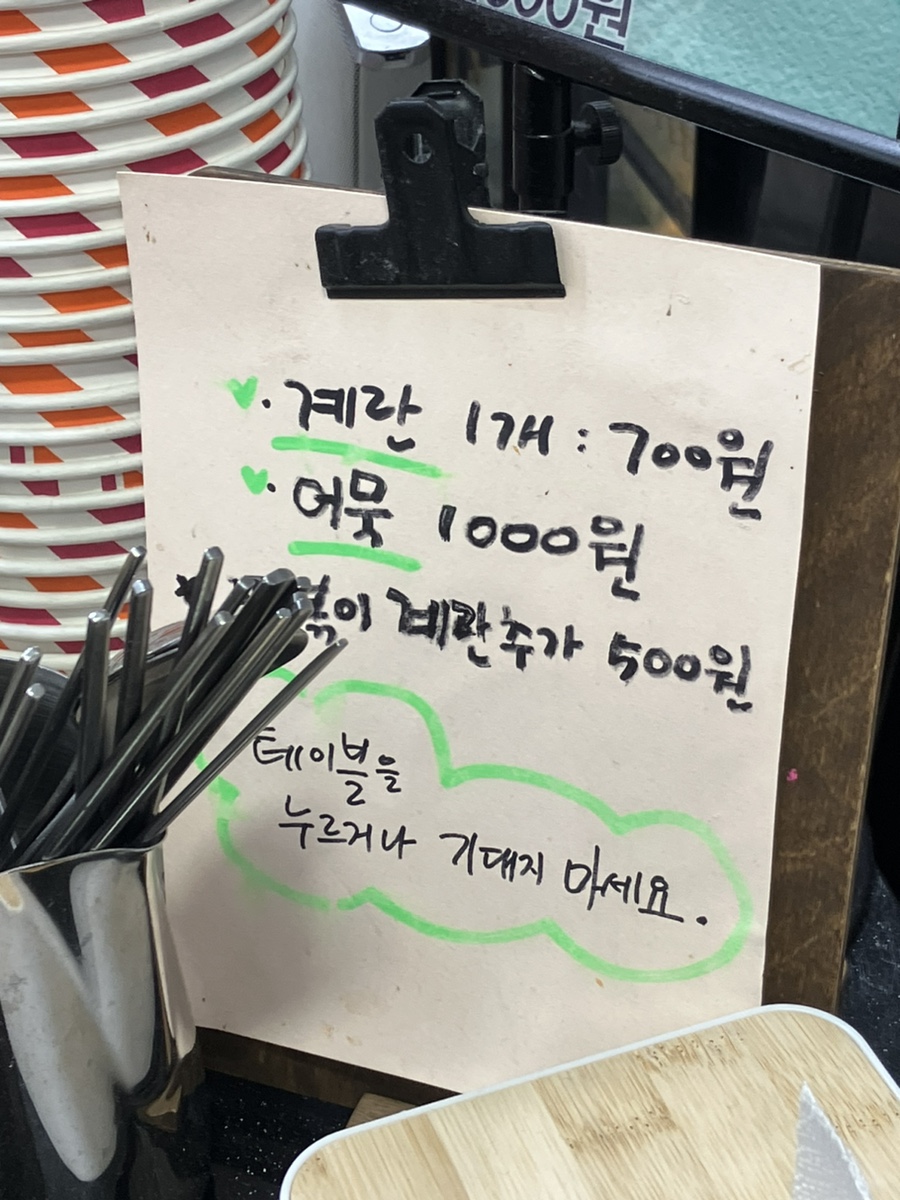 000원
계란 1개 : 700원
어묵 1000원
계란추가 500원
테이블을
누르거나 기대지 마세요.